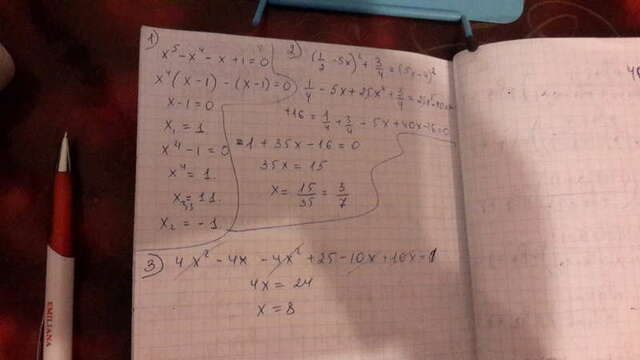 1)
x⁵ - x⁴ - x + 1 = 0
x⁴(x - 1) - (x - 1) = 0
x - 1 = 0
x₁ = 1
x⁴ - 1 = 0
x⁴ = 1.
x₂ = - 1
2) (1/2 - 5x)² + 3/4 = (5x - 4)²
1/4 - 5x + 25x² + 3/4 =
+16 = 1/4 + 3/4 - 5x + 40x - 16 = 0
= 1 + 35x - 16 = 0
35x = 15
x = 15/35 = 3/7
3) 4x² - 4x - 4x² + 25 - 10x + 10x = 1
4x = 24
x = 8
EMILIANA